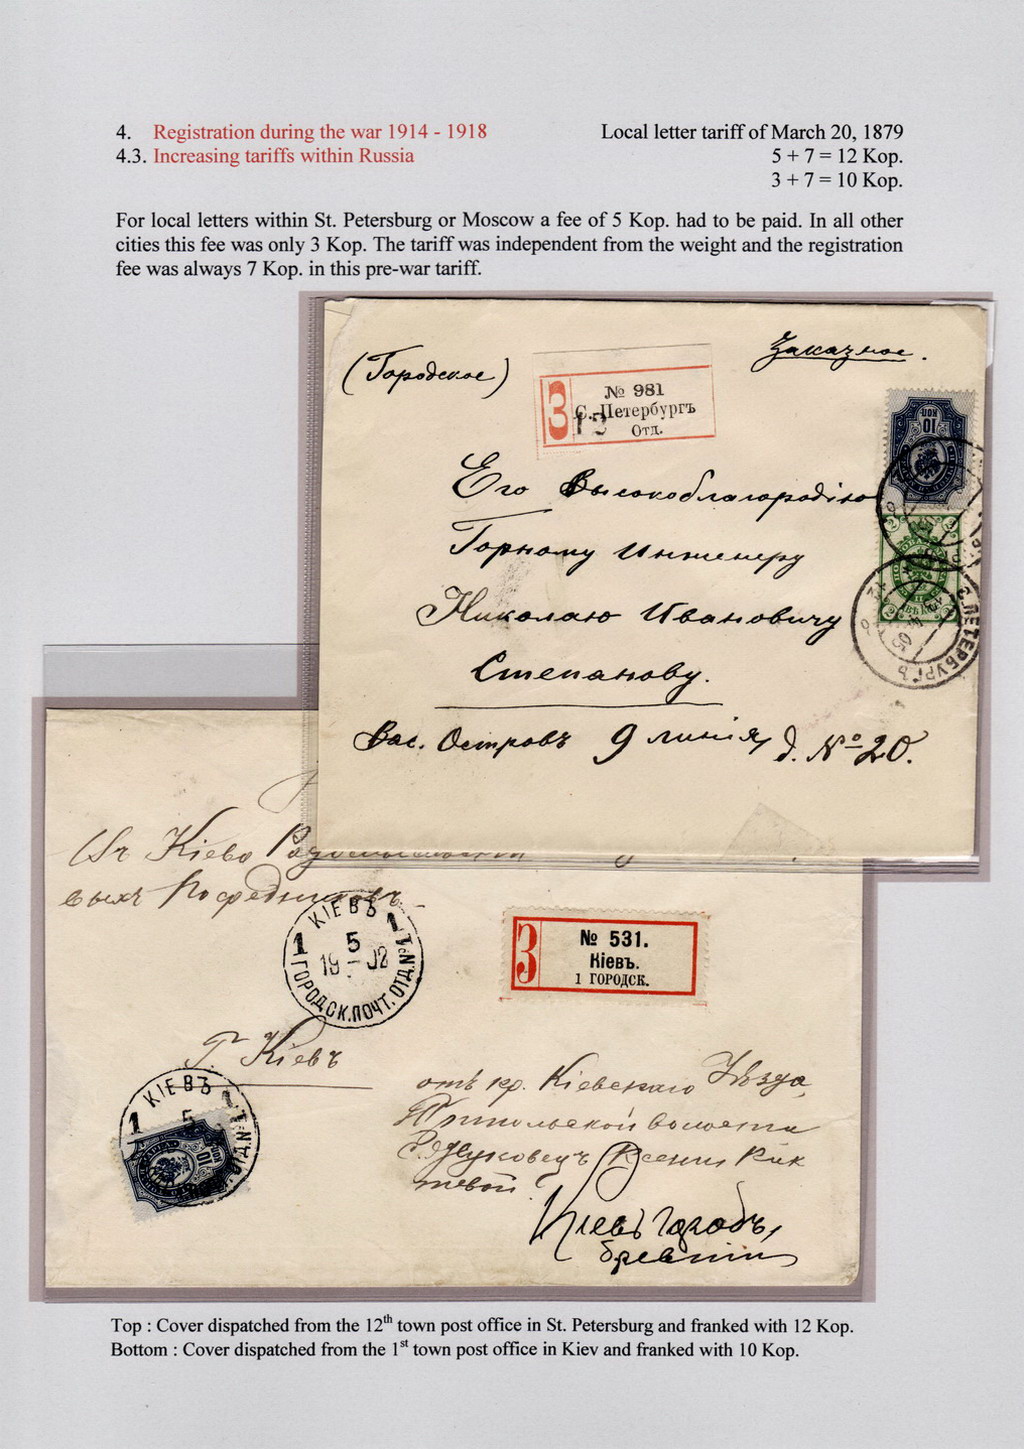 4. Registration during the war 1914 - 1918
Local letter tariff of March 20, 1879
4.3. Increasing tariffs within Russia
5 + 7 = 12 Kop.
3 + 7 = 10 Kop.
For local letters within St. Petersburg or Moscow a fee of 5 Kop. had to be paid. In all other
cities this fee was only 3 Kop. The tariff was independent from the weight and the registration
fee was always 7 Kop. in this pre-war tariff.
Заказное.
(Городское)
З
№ 981
С. Петербургъ
12
Отд.
10
КОП
Его Высокоблагородію
Горному Инженеру
Николаю Ивановичу
Степанову.
Вас. Островъ 9 линія, д. № 20.
С. ПЕТЕРБУРГЪ
Въ Кіево
выхъ
КІЕВЪ
1 5 1
19 – 02
ГОРОДСК. ПОЧТ. ОТД. №1
З
№ 531.
Кіевъ.
1 ГОРОДСК.
Г. Кіевъ
КІЕВЪ
1 5 1
10
КОП
отъ кр. Кіевскаго Уѣзда,
волости
Ксеніи
Top : Cover dispatched from the 12th town post office in St. Petersburg and franked with 12 Kop.
Bottom : Cover dispatched from the 1st town post office in Kiev and franked with 10 Kop.